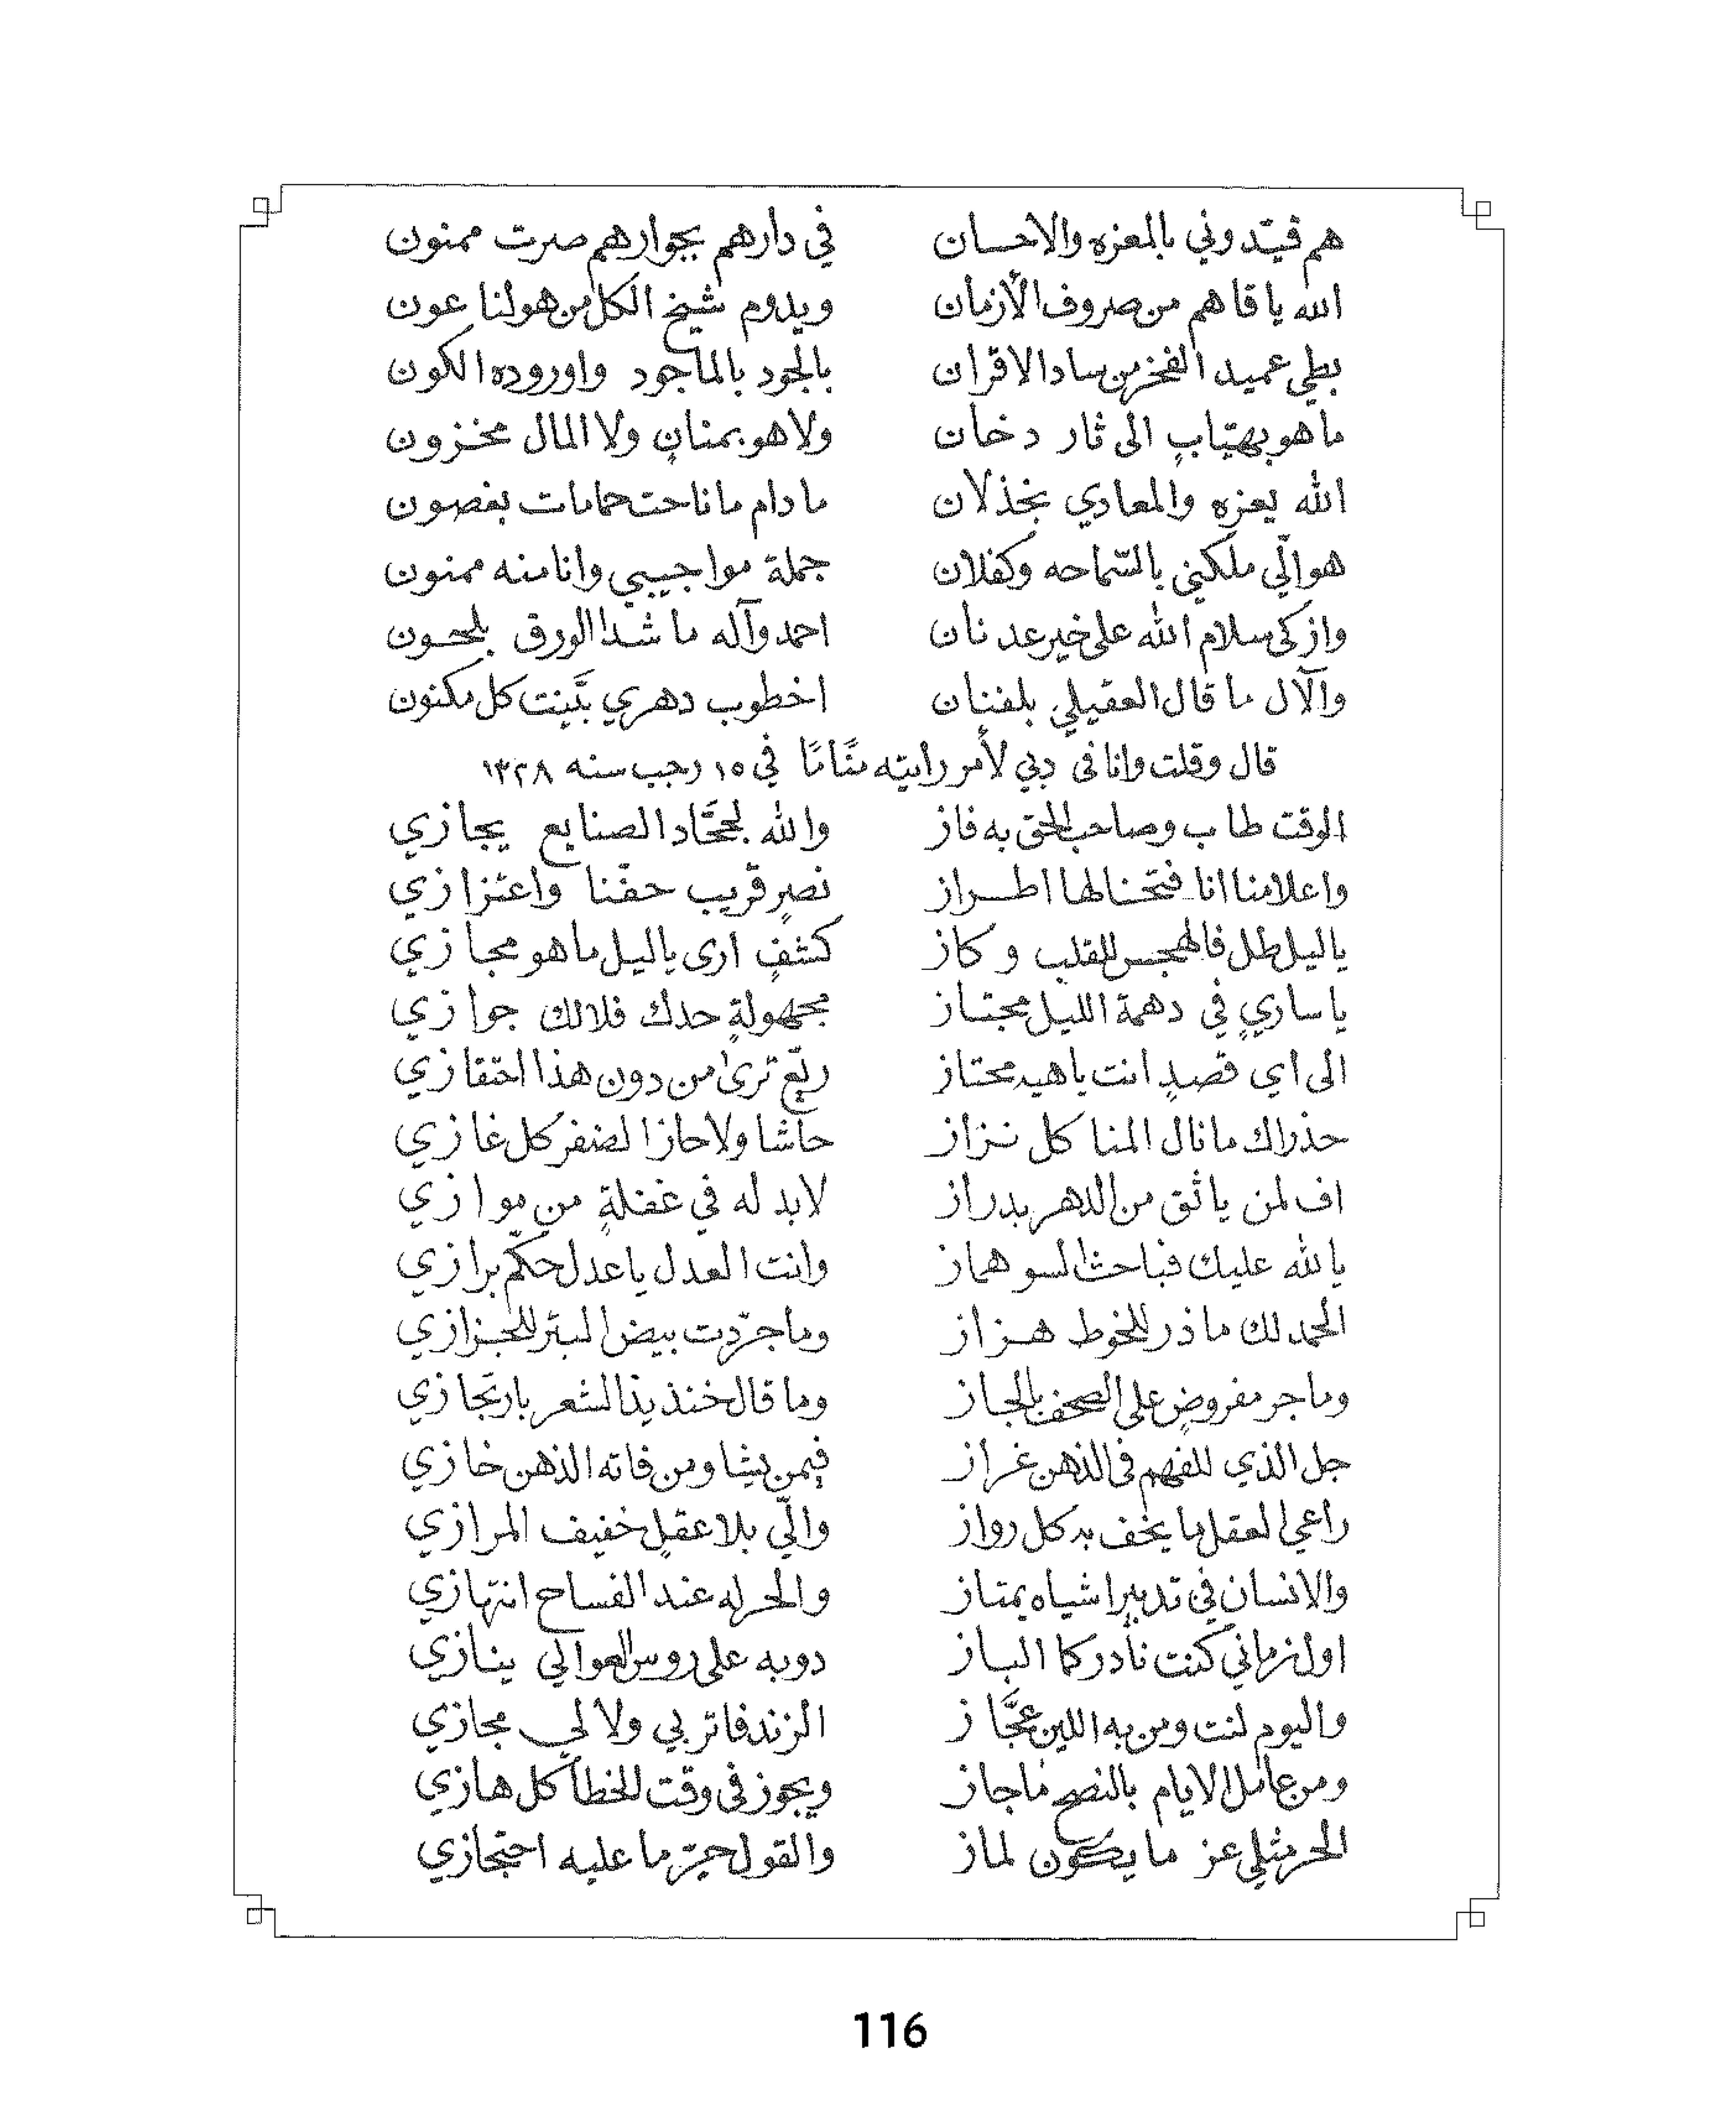 هم قيّدوني بالمعزه والاحسان في دارهم بجوارهم صرت ممنون
الله ياقاهم من صروف الأزمان ويدوم شيخ الكل من هو لنا عون
بطي عميد الفخر من ساد الاقران بالجود بالماجود واوروده الكون
ما هو بهيّابٍ الى ثار دخان ولا هو بمنانٍ ولا المال مخزون
الله يعزه والمعادي بخذلان ما دام ما ناحت حمامات بغصون
هو الّي ملكني بالسّماحه وكفلان جملة مواجيبي وانا منه ممنون
وازكى سلام الله على خير عدنان احمد وآله ما شدا الورق بلحون
والآل ما قال العقيلي بلفنان اخطوب دهري بَيّنت كل مكنون
قال وقلت وانا فى دبي لأمر رايته في ١٥ رجب سنه ١٣٢٨
الوقت طاب وصاحب الحق به فاز والله لجحّاد الصنايع يجازي
واعلامنا انا فتحنا لها اطراز نصرٍ قريب حفّنا واعتزازي
ياليل طل فالهجس للقلب وكاز كشفٍ ارى ياليل ما هو مجازي
يا ساريٍ في دهمة الليل مجتاز مجهولةٍ حدك فلالك جوازي
الى اي قصدٍ انت ياهيه محتاز ربّع ترى من دون هذا احتقازي
حذراك ما نال المنا كل نزاز حاشا ولا حاز الضفر كل غازي
اف لمن ياثق من الدهر بدراز لابد له في غفلةٍ من موازي
يالله عليك فباحث السو هماز وانت العدل ياعدل حكّم برازي
الحمد لك ما ذر للخوط هزاز وما جرّدت بيض البتر للجزازي
وما جر مفروضٍ على الصحف بالجاز وما قال خنذيذ الشعر بارتجازي
جل الذي للفهم فى الذهن غراز فيمن يشا ومن فاته الذهن خازي
راعي العقل ما يخف به كل رواز والّي بلا عقلٍ خفيف المرازي
والانسان في تدبير اشياه يمتاز والحر له عند الفساح انتهازي
اول زماني كنت نادر كما الباز دوبه على روس العوالي ينازي
واليوم لنت ومن به اللين عجّاز الزند فاتر بي ولا لي مجازي
ومن عامل الايام بالنصح ماجاز ويجوز فى وقت الخطا كل هازي
الحر مثلي عز ما يكون لماز والقول حبّر ما عليه احتجازي
116